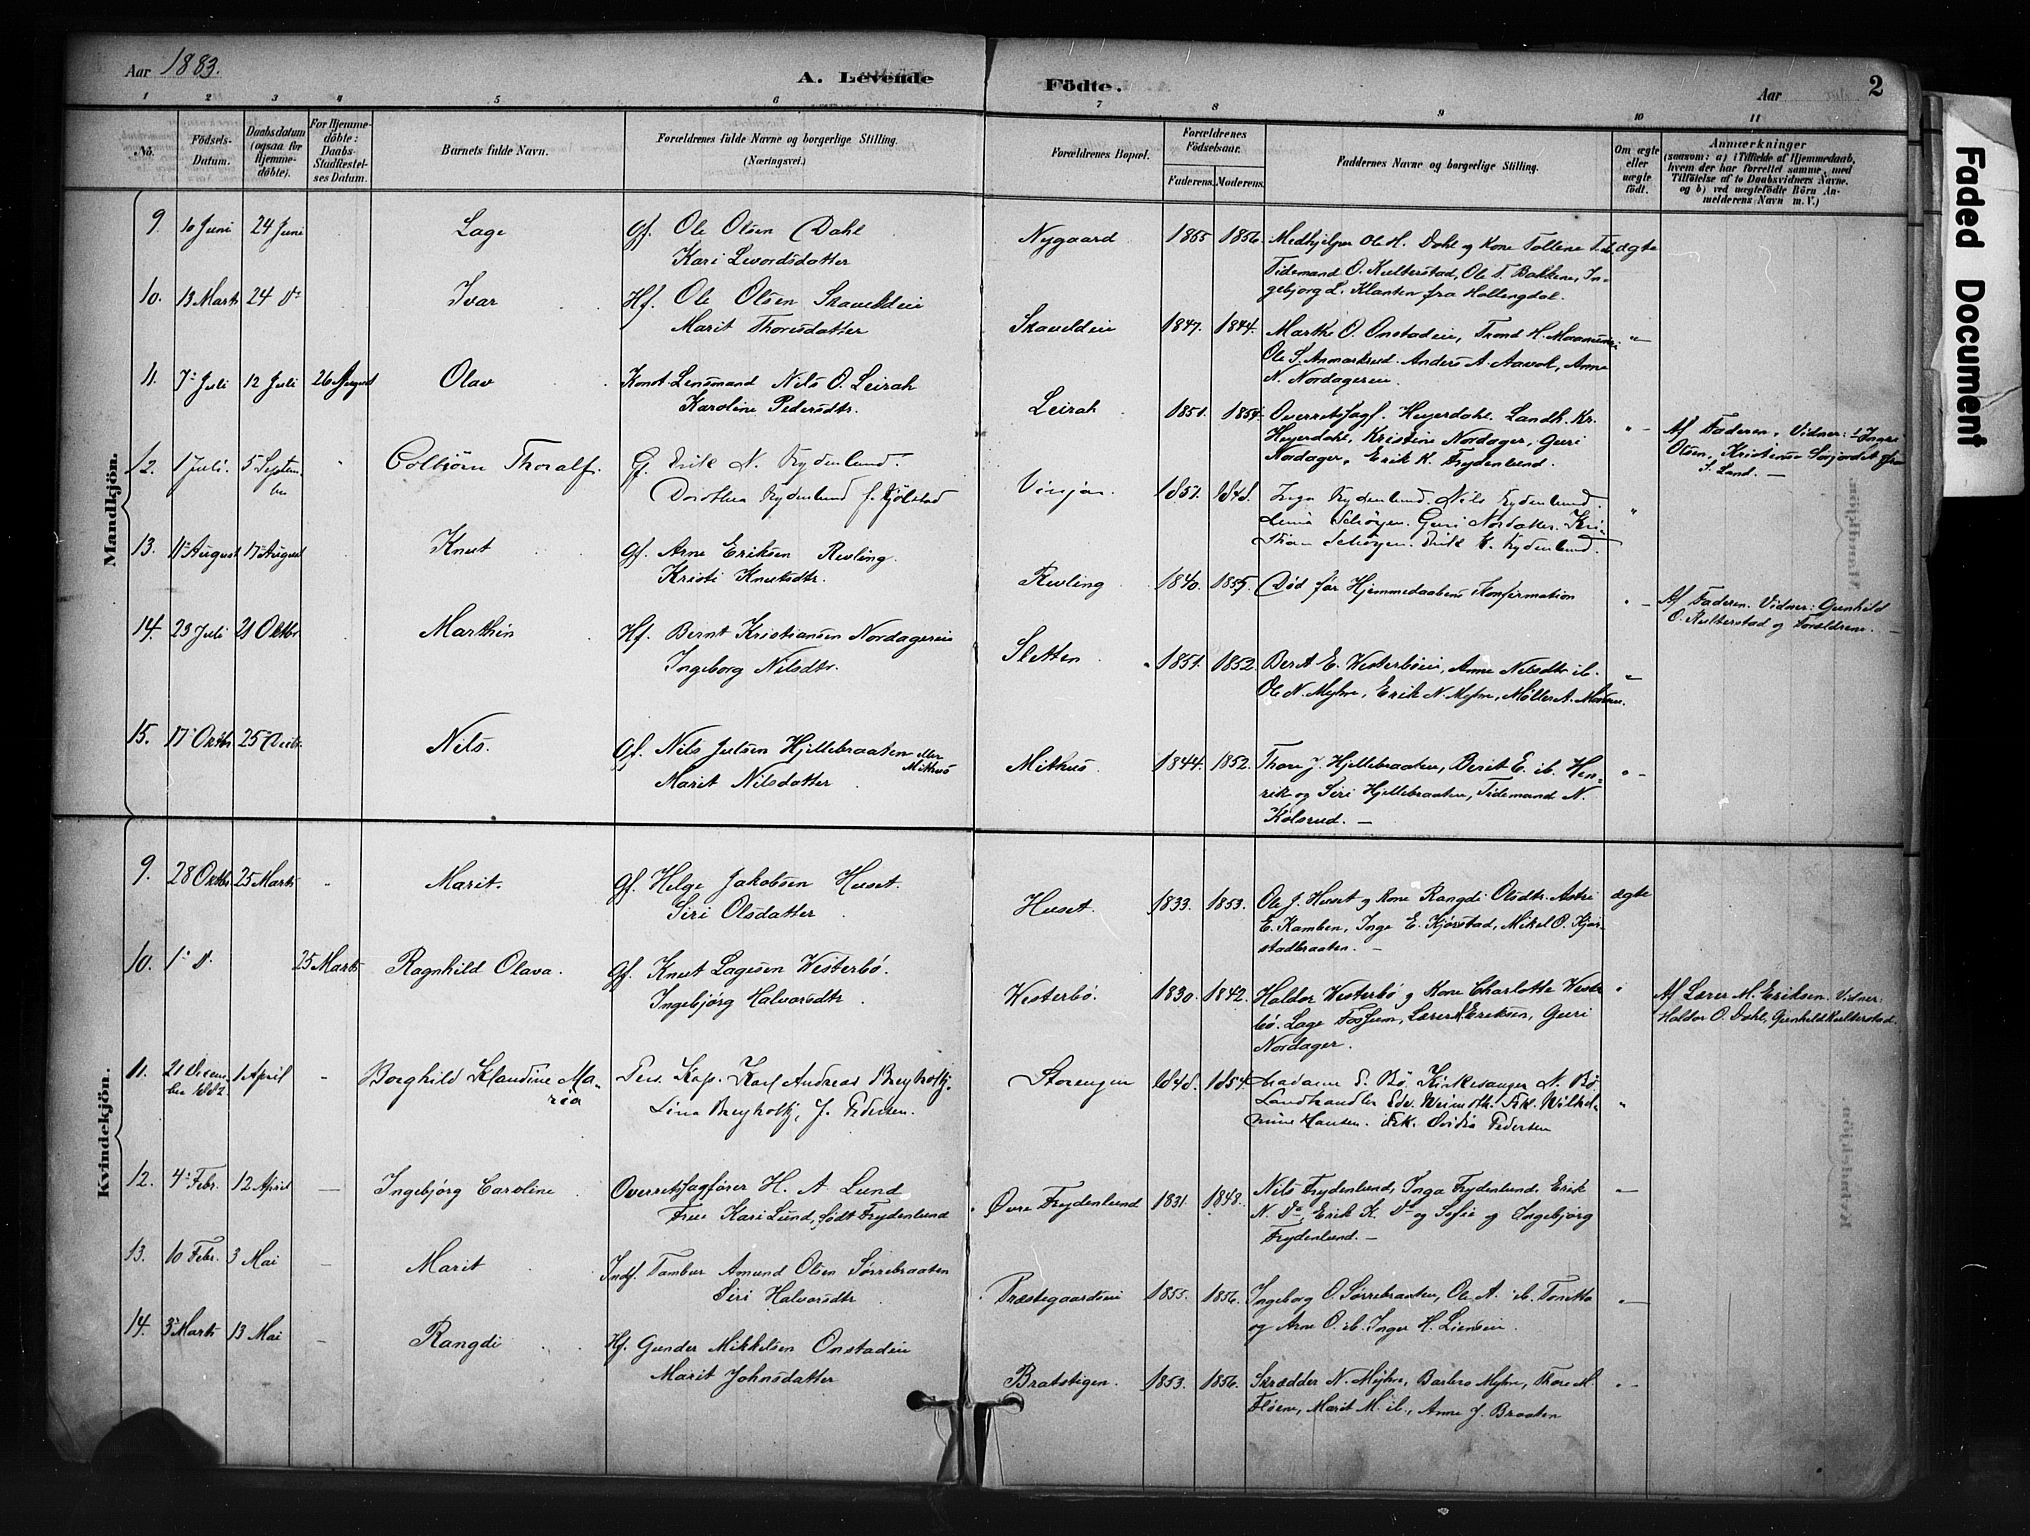 Aar 1883.
A. Levende Födte.
Aar
2
1 2 3 4 5 6 7 8 9 10 11
No.
Fødsels-Datum.
Daabsdatum (ogsaa for Hjemmedöbte).
For Hjemmedöbte: Daabs-Stadfæstelses Datum.
Barnets fulde Navn.
Forældrenes fulde Navne og borgerlige Stilling. (Næringsvei.)
Forældrenes Bopæl.
Forældrenes Födselsaar.
Faderens. Moderens.
Faddernes Navne og borgerlige Stilling.
Om ægte eller uægte född.
Anmærkninger
(saasom: a) i Tilfælde af Hjemmedaab, hvem der har forrettet samme, med Tilföielse af to Daabsvidners Navne. og b) ved uægtefödte Börn Anmelderens Navn m. V.)
Faded Document
Mandkjön.
9 10 Juni 24 Juni Lage Gf. Ole Olsen Dahl
Kari Livordsdatter
Nygaard 1855 1856. Medhjelper Ole H. Dahl og Kone Tollene T.d. ægte
Tidemand O. Kulterstad, Ole T. Bakkene, In-
gebjorg L. Klanten fra Hallengdal.
10. 13 Marts 24 Do Ivar Hf. Ole Olsen
Marit Thorsdatter
1847. 1844. Marthe O. Onstadeie, Trond H.
Ole S. Anmarkrud. Anders A. Aavol, Anne
N. Nordagereie.
11. 7 Juli 12 Juli 26 August Olav Konst. Lensmand Nils O. Leirah
Karoline Pedersdtr.
Leirah 1851. 1854. Overretssagf. Heyerdahl. Landh. Kr.
Heyerdahl, Kristine Nordager, Guri
Nordager, Erik K. Frydenlund.
Af Faderen, Vidner: Inger
Olsen, Kristense Sørjordet fra
S. Land. —
12. 1 Juli. 5 Septem-
ber Colbjörn Thoralf. Gf. Erik N. Frydenlund.
Dorothea Frydenlund f. Kjölstad
1857. 1848. Inga Frydenlund. Nils Frydenlund.
Lina Schöyen. Guri Nordatter.
Schöyen. Erik K. Frydenlund.
13. 11 August 17 August Knut Gf. Arne Eriksen Revling.
Kristi Knutsdtr.
Revling 1840. 1855 Død før Hjemmedaabens Konfirmation
Af Faderen. Vidner: Gunhild
O. Kulterstad og Forældrene. —
14. 23 Juli 21 Oktbr Marthin Hf. Bernt Kristiansen Nordagereie
Ingeborg Nilsdtr.
Sletten 1851. 1852. Berit E. Westerbøeie, Anne Nilsdtr ib.
Ole N. Myhre, Erik N. Myhre, Møller A.
15. 17 Oktbr 25 Nils. Gf. Nils Julsen Hjellebraaten eller
Mithus
Marit Nilsdatter
Mithus. 1844. 1852. Thore J. Hjellebraaten, Berit E. ib. Hen-
rik og Siri Hjellebraaten, Tidemand N.
Kølsrud. —
Kvindekjön.
9. 28 Oktbr 25 Marts Marit. Gf. Helge Jakobsen Huset.
Siri Olsdatter
Huset. 1833. 1853. Ole J. Huset og Kone Rangdi Olsdtr. Astri ægte
E. Kamben, Inge E. Kjørstad, Mikel O. Kjør-
stadbraaten. —
10. 1 D. 25 Marts Ragnhild Olava. Gf. Knut Lagesen Westerbø.
Ingebjörg Halvorsdtr
Westerbø. 1830. 1842. Haldor Westerbø og Kone Charlotte Wester-
bø. Lage Fossum, Lærer Eriksen, Guri
Nordager.
Af Lærer M. Eriksen. Vidner:
Haldor O. Dahl, Gunhild Kulterstad.
11. 21 Decem-
ber 1882. 1 April Borghild Klaudine Ma-
ria Prs. Kap. Karl Andreas Breyholtz,
Lina Breyholtz, f. Pedersen.
Storengen 1848. 1854. Madame S. Bø, Kirkesanger N. Bø
Landhandler Edv. Frk. Wilhel-
mine Hansen. Frk. Ovidia Pedersen
12. 4 Febr. 12 April Ingebjørg Caroline Overretssagfører H. A. Lund
Frue Kari Lund, født Frydenlund
Øvre Frydenlund 1831. 1848. Nils Frydenlund, Inga Frydenlund. Erik
N. Do, Erik K. Do og Sofie og Ingebjørg
Frydenlund. —
13. 10 Febr. 3 Mai Marit Indf. Tambur Amund Olsen Sørrebraaten
Siri Halvorsdtr
Præstegaardseie 1855. 1856. Ingeborg O. Sørrebraaten, Ole A. ib.
og Arne O. ib. Inger H. Lienseie.
14. 3 Marts 13 Mai Rangdi Hf. Gunder Mikkelsen Onstadeie
Marit Johnsdatter
Bratstigen. 1853. 1856. Skrædder N. Myhre, Barbro Myhre, Thore M.
Fløene, Marit M. ib., Anne J. Braaten